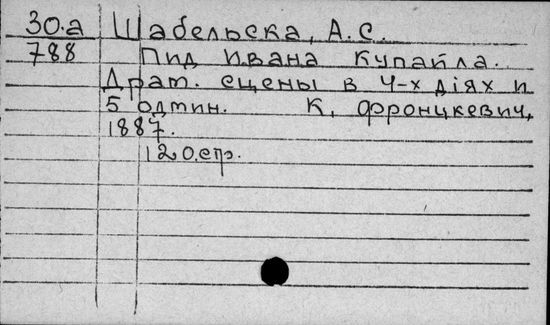 30.а Шабельска, А.С.
788 Пид Ивана Купайла.
Драт. сцены в 4-х діях и
5 одтин. К, Фронцкевич,
1887.
120.стр.